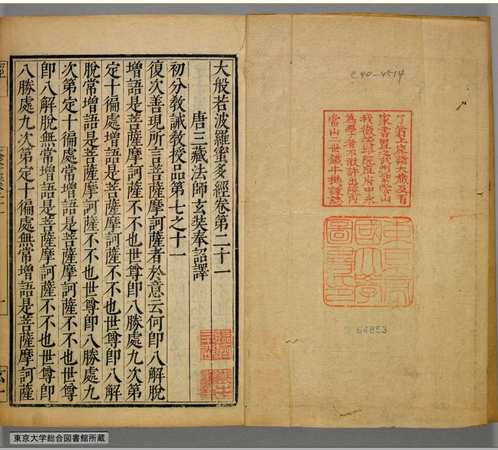 家書置之武州紫雲山
當山一世鐵牛機謹誌
東京帝
國大學
圖書印
64853
大般若波羅蜜多經卷第二十一
唐三藏法師玄奘奉詔譯
初分教誡教授品第七之十一
復次善現所言菩薩摩訶薩者於意云何即八解脫
增語是菩薩摩訶薩不不也世尊即八勝處九次第
定十徧處增語是菩薩摩訶薩不不也世尊即八解
脫常增語是菩薩摩訶薩不不也世尊即八勝處九
次第定十徧處常增語是菩薩摩訶薩不不也世尊
即八解脫無常增語是菩薩摩訶薩不不也世尊即
八勝處九次第定十徧處無常增語是菩薩摩訶薩
東京大学総合図書館所蔵